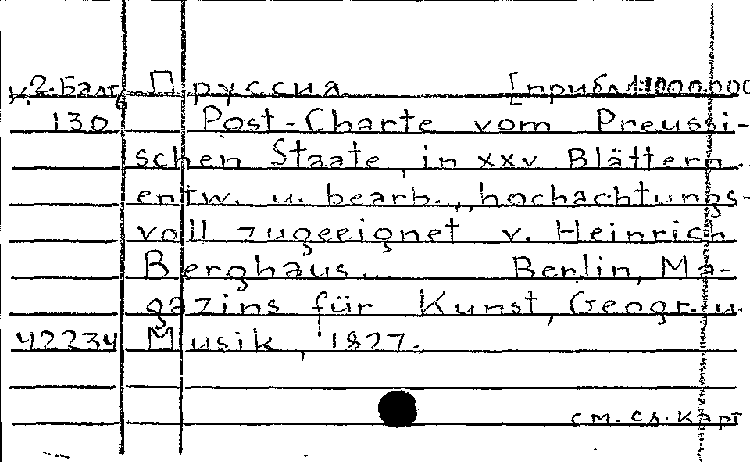 К2-Балт Пруссия [прибл. 1:1000.000
6
130 Post-Charte vom Preussi-
schen Staate, in xxv Blättern.
entw. u. bearb., hochachtungs-
voll zugeeignet v. Heinrich
Berghaus. Berlin, Ma-
gazins für Kunst, Geogr. u.
42234 Musik, 1827.
см. сл. карт